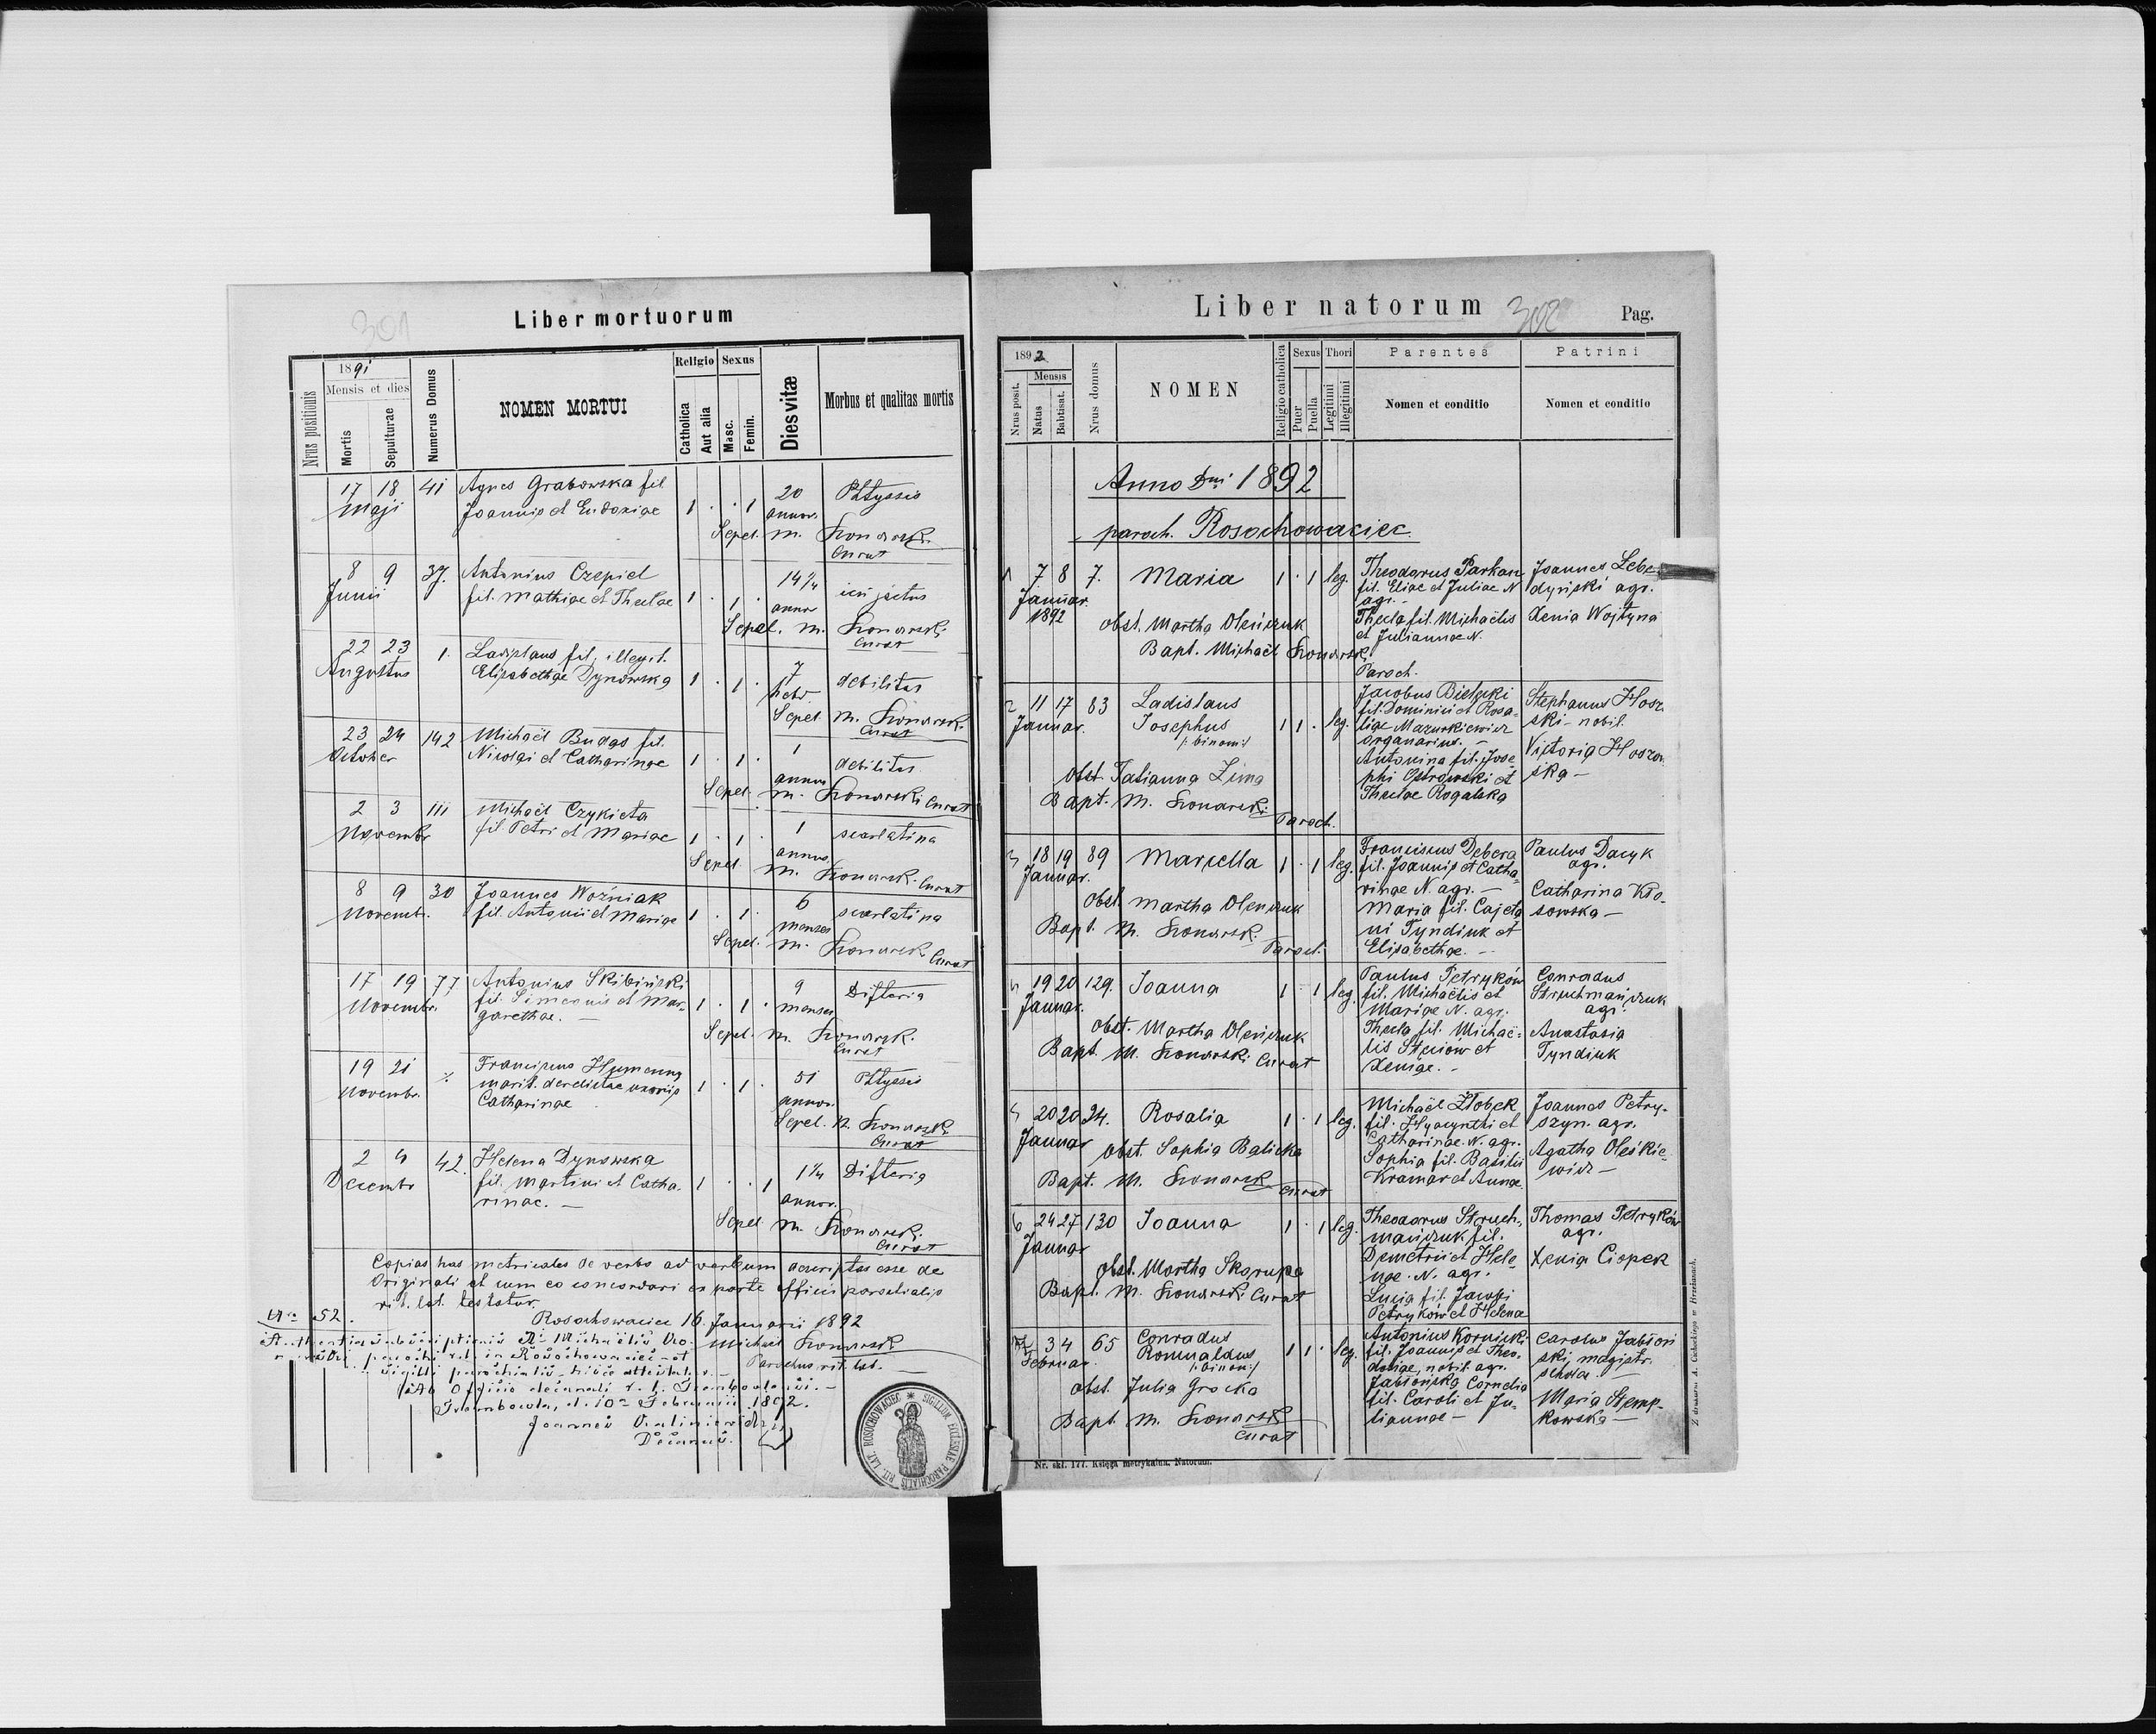 301
Liber mortuorum
Nrus positionis
1891
Mensis et dies
Mortis
Sepulturae
Numerus Domus
NOMEN MORTUI
Religio
Catholica
Aut alia
Sexus
Masc.
Femin.
Dies vitæ
Morbus et qualitas mortis
17 18 41 Agnes Grabowska fil 20 Phtyssis
Maji Joannis et Eudoxiae 1 . . 1 annor.
Sepel. M. Konarski
Curat
8 9 37. Antonius Czepiel 14 1/4
Junii fil. Mathiae et Theclae 1 . 1 . annor
Sepel. M. Konarski
Curat
22 23 1. Ladislaus fil. illegit. 7 debilitas
Augustus Elisabethae Dynowska 1 . 1 . hebd
Sepel. M. Konarski
Curat
23 24 142 Michaël Budas fil. 1 debilitas
October Nicolai et Catharinae 1 . 1 . annus
Sepel. M. Konarski Curat
2 3 111 Michaël Czykieta 1 scarlatina
Novembr fil Petri et Mariae 1 . 1 . annus
Sepel. M. Konarski Curat
8 9 30 Joannes Woźniak 6 scarlatina
Novembr. fil. Antonii et Mariae 1 . 1 . menses
Sepel. M. Konarski Curat
17 19 77 Antonius Skibiński 9 Difteria
Novembr. fil. Simeonis et Mar- 1 . 1 . menses
garethae. —
Sepel. M. Konarski
Curat
19 21 Franciscus Humenny 51 Phtyssis
Novembr. marit. derelictae uxoris 1 . 1 . annor.
Catharinae
Sepel. M. Konarski
Curat
2 4 42. Helena Dynowska 1 1/4 Difteria
Decembr fil. Martini et Catha- 1 . . 1 annor.
rinae. —
Sepel M. Konarski
Curat
Copias has metricales de verbo ad verbum descriptas esse de
Originali et cum eo concordari ex parte officii parochialis
rit. lat. testatur.
Rosochowaciec 16. Januarii 1892
Michaël Konarski
Parochus rit. lat.
Nro 52.
parochi r.l. in Rosochowaciec et
sigilli parochialis hisce attestatur. —
Ab Officio decanali r. l. Trembowlensi. —
Trembowla, d. 10 Februarii 1892.
Joannes
Decanus.
SIGILLUM ECCLESIAE PAROCHIALIS RIT. LAT. ROSOCHOWACIEC
Liber natorum
302
Pag.
1892
Nrus posit.
Mensis
Natus
Babtisat.
Nrus domus
NOMEN
Religio catholica
Sexus
Puer
Puella
Thori
Legitimi
Illegitimi
Parentes
Nomen et conditio
Patrini
Nomen et conditio
Anno Dni 1892
paroch. Rosochowaciec
1 7 8 7. Maria 1 . 1 leg.
Januar.
1892
obst. Martha Oleńczuk
Bapt. Michaël Konarski
Paroch.
Theodorus Parkan
fil. Eliae et Juliae N
agr. —
Thecla fil. Michaëlis
et Juliannae N.
Joannes Lebe-
dyński agr.
Xenia Wojtyna
2 11 17 83 Ladislaus
Januar. Josephus 1 1 . leg.
/: binom :/
obst. Tatianna Zima
Bapt. M. Konarski
Paroch.
Jacobus Bielecki
fil. Dominici et Rosa-
liae Mazurkiewicz
organarius. —
Antonina fil. Jose-
phi Ostrowski et
Theclae Rogalska
Stephanus
ski — nobil.
Victoria
ska —
3 18 19 89 Marcella 1 . 1 leg.
Januar.
obst. Martha Oleńczuk
Bapt. M. Konarski
Paroch.
Franciscus Debera
fil. Joannis et Catha-
rinae N. agr. —
Maria fil. Cajeta-
ni Tyndiuk et
Elisabethae. —
Paulus Dacyk
agr.
Catharina Kło-
sowska —
4 19 20 129. Joanna 1 . 1 leg.
Januar.
obst. Martha Oleńczuk
Bapt. M. Konarski Curat
Paulus Petryków
fil. Michaëlis et
Mariae N. agr.
Thecla fil. Michaë-
lis Steciow et
Xeniae. —
Conradus
Struchmańczuk
agr.
Anastasia
Tyndiuk
5 20 20 24. Rosalia 1 . 1 leg.
Januar
obst. Sophia Balicka
Bapt. M. Konarski
Curat
Michaël Żłobek
fil. Hyacynthi et
Catharinae N. agr.
Sophia fil. Basilii
Kramar et Annae
Joannes Petry-
szyn. agr.
Agatha Oleśkie-
wicz —
6 24 27 130 Joanna 1 . 1 leg.
Januar
obst. Martha Skarupa
Bapt. M. Konarski Curat
Theodorus Struch-
mańczuk fil.
Demetrii et Hele-
nae N. agr.
Lucia fil. Jacobi
Petryków et Helena
Thomas Petryków
agr.
Xenia Ciepek
7 3 4 65 Conradus 1 1 . leg.
Februar. Romualdus
/: binom :/
obst. Julia Grocka
Bapt. M. Konarski
Curat
Antonius Kornicki
fil. Joannis et Theo-
dosiae, nobil. agr.
Jabłońska Cornelia
fil. Caroli et Ju-
liannae —
Carolus Jabłoń
ski, magistr.
scholae. —
Maria Stemp-
kowska —
Nr. skł. 177. Księga metrykalna. Natorum.
Z drukarni A. Cichockiego w Brzeżanach.